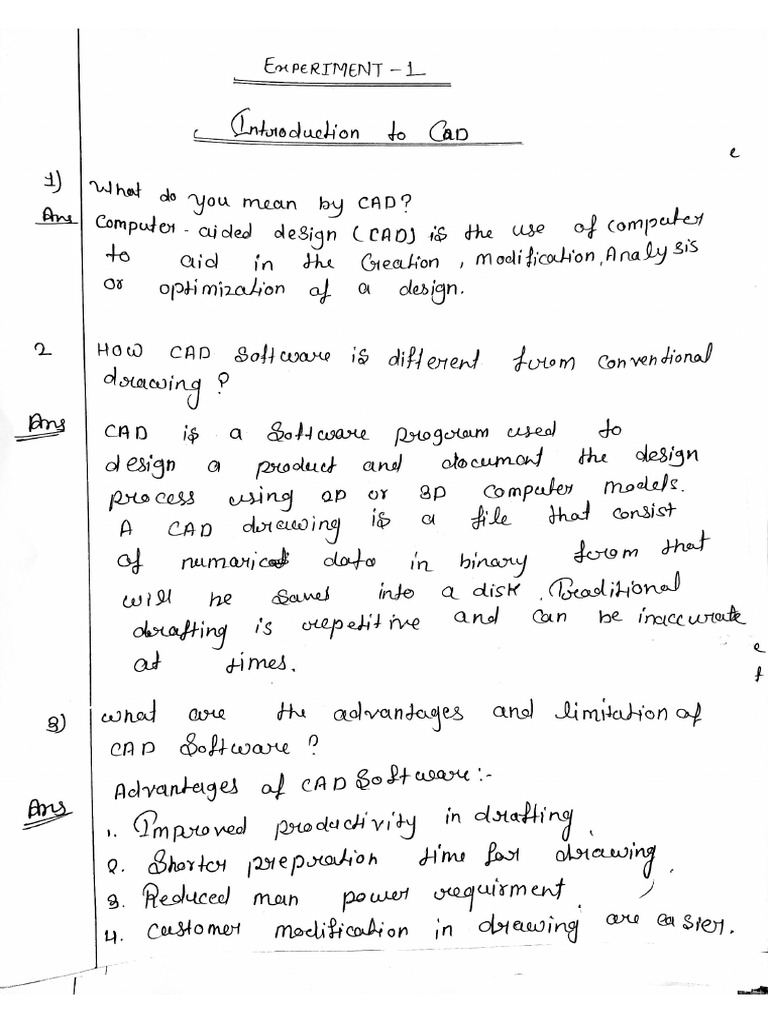 EXPERIMENT - 1
Introduction to CAD
e
1) What do you mean by CAD?
Ans Computer-aided design (CAD) is the use of computer
to aid in the Creation, Modification, Analysis
or optimization of a design.
2 How CAD Software is different from conventional
drawing?
Ans CAD is a Software program used to
design a product and document the design
process using 2D or 3D computer models.
A CAD drawing is a file that consist
of numarical data in binary from that
will be saves into a disk. Traditional
drafting is repetitive and can be inaccurate
e
at times.
f
3) What are the advantages and limitation of
CAD Software?
Advantages of CAD Software:-
Ans
1. Improved productivity in drafting
2. Shorter prepration time for drawing
3. Reduced man power requirment.
4. Customer modification in drawing are easier.